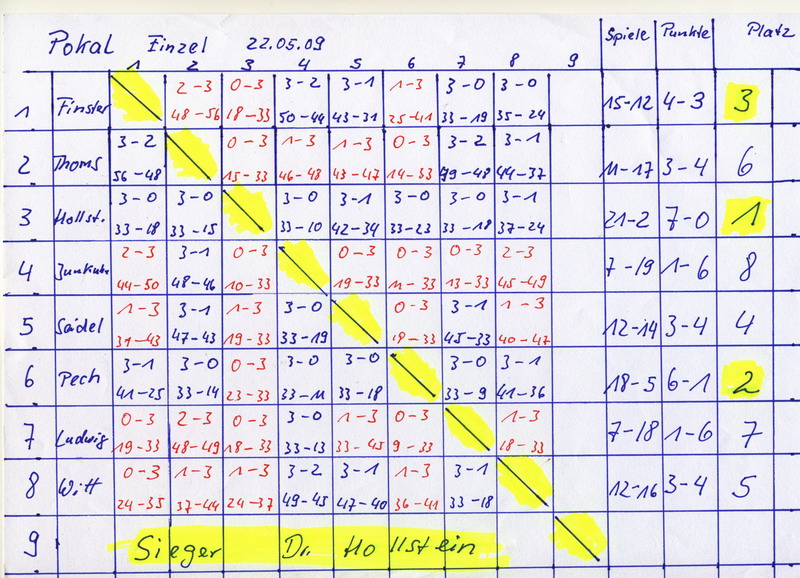 Pokal Einzel 22.05.09 Spiele Punkte Platz
1 2 3 4 5 6 7 8 9
1 Finster 2-3 0-3 3-2 3-1 1-3 3-0 3-0 15-12 4-3 3
48-56 18-33 50-44 43-31 25-41 33-19 35-24
2 Thoms 3-2 0-3 1-3 1-3 0-3 3-2 3-1 11-17 3-4 6
56-48 15-33 46-48 43-47 14-33 49-48 44-37
3 Hollst. 3-0 3-0 3-0 3-1 3-0 3-0 3-1 21-2 7-0 1
33-18 33-15 33-10 42-34 33-23 33-18 37-24
4 2-3 3-1 0-3 0-3 0-3 0-3 2-3 7-19 1-6 8
44-50 48-46 10-33 19-33 11-33 13-33 45-49
5 Sádel 1-3 3-1 1-3 3-0 0-3 3-1 1-3 12-14 3-4 4
31-43 47-43 19-33 33-19 18-33 45-33 40-47
6 Pech 3-1 3-0 0-3 3-0 3-0 3-0 3-1 18-5 6-1 2
41-25 33-14 23-33 33-11 33-18 33-9 41-36
7 Ludwig 0-3 2-3 0-3 3-0 1-3 0-3 1-3 7-18 1-6 7
19-33 48-49 18-33 33-13 33-45 9-33 18-33
8 Witt 0-3 1-3 1-3 3-2 3-1 1-3 3-1 12-16 3-4 5
24-35 37-44 24-37 49-45 47-40 36-41 33-18
9 Sieger Dr. Hollstein